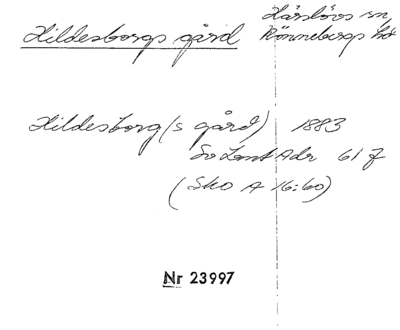 Hildesborgs gård Härslövs sn,
Rönnebergs hd
Hildesborg (s gård) 1883
Sv Lant Adr 61 f
(Sko A 16:60)
Nr 23997